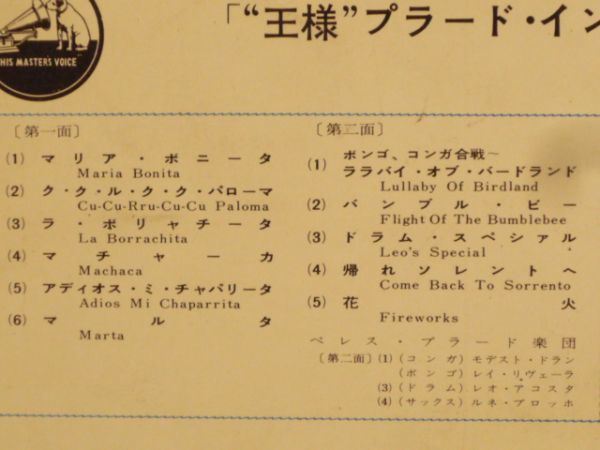 HIS MASTER'S VOICE
「“王様”プラード・イン
〔第一面〕
(1) マリア・ボニータ
Maria Bonita
(2) ク・ク・ル・ク・ク・パローマ
Cu-Cu-Rru-Cu-Cu Paloma
(3) ラ・ボリャチータ
La Borrachita
(4) マチャーカ
Machaca
(5) アディオス・ミ・チャパリータ
Adios Mi Chaparrita
(6) マルタ
Marta
〔第二面〕
ボンゴ、コンガ合戦～
(1) ララバイ・オブ・バードランド
Lullaby Of Birdland
(2) バンブル・ビー
Flight Of The Bumblebee
(3) ドラム・スペシァル
Leo's Special
(4) 帰れソレントへ
Come Back To Sorrento
(5) 花火
Fireworks
ペレス・プラード楽団
〔第二面〕(1) (コンガ) モデスト・ドラン
(ボンゴ) レイ・リヴェーラ
(3) (ドラム) レオ・アコスタ
(4) (サックス) ルネ・ブロッホ